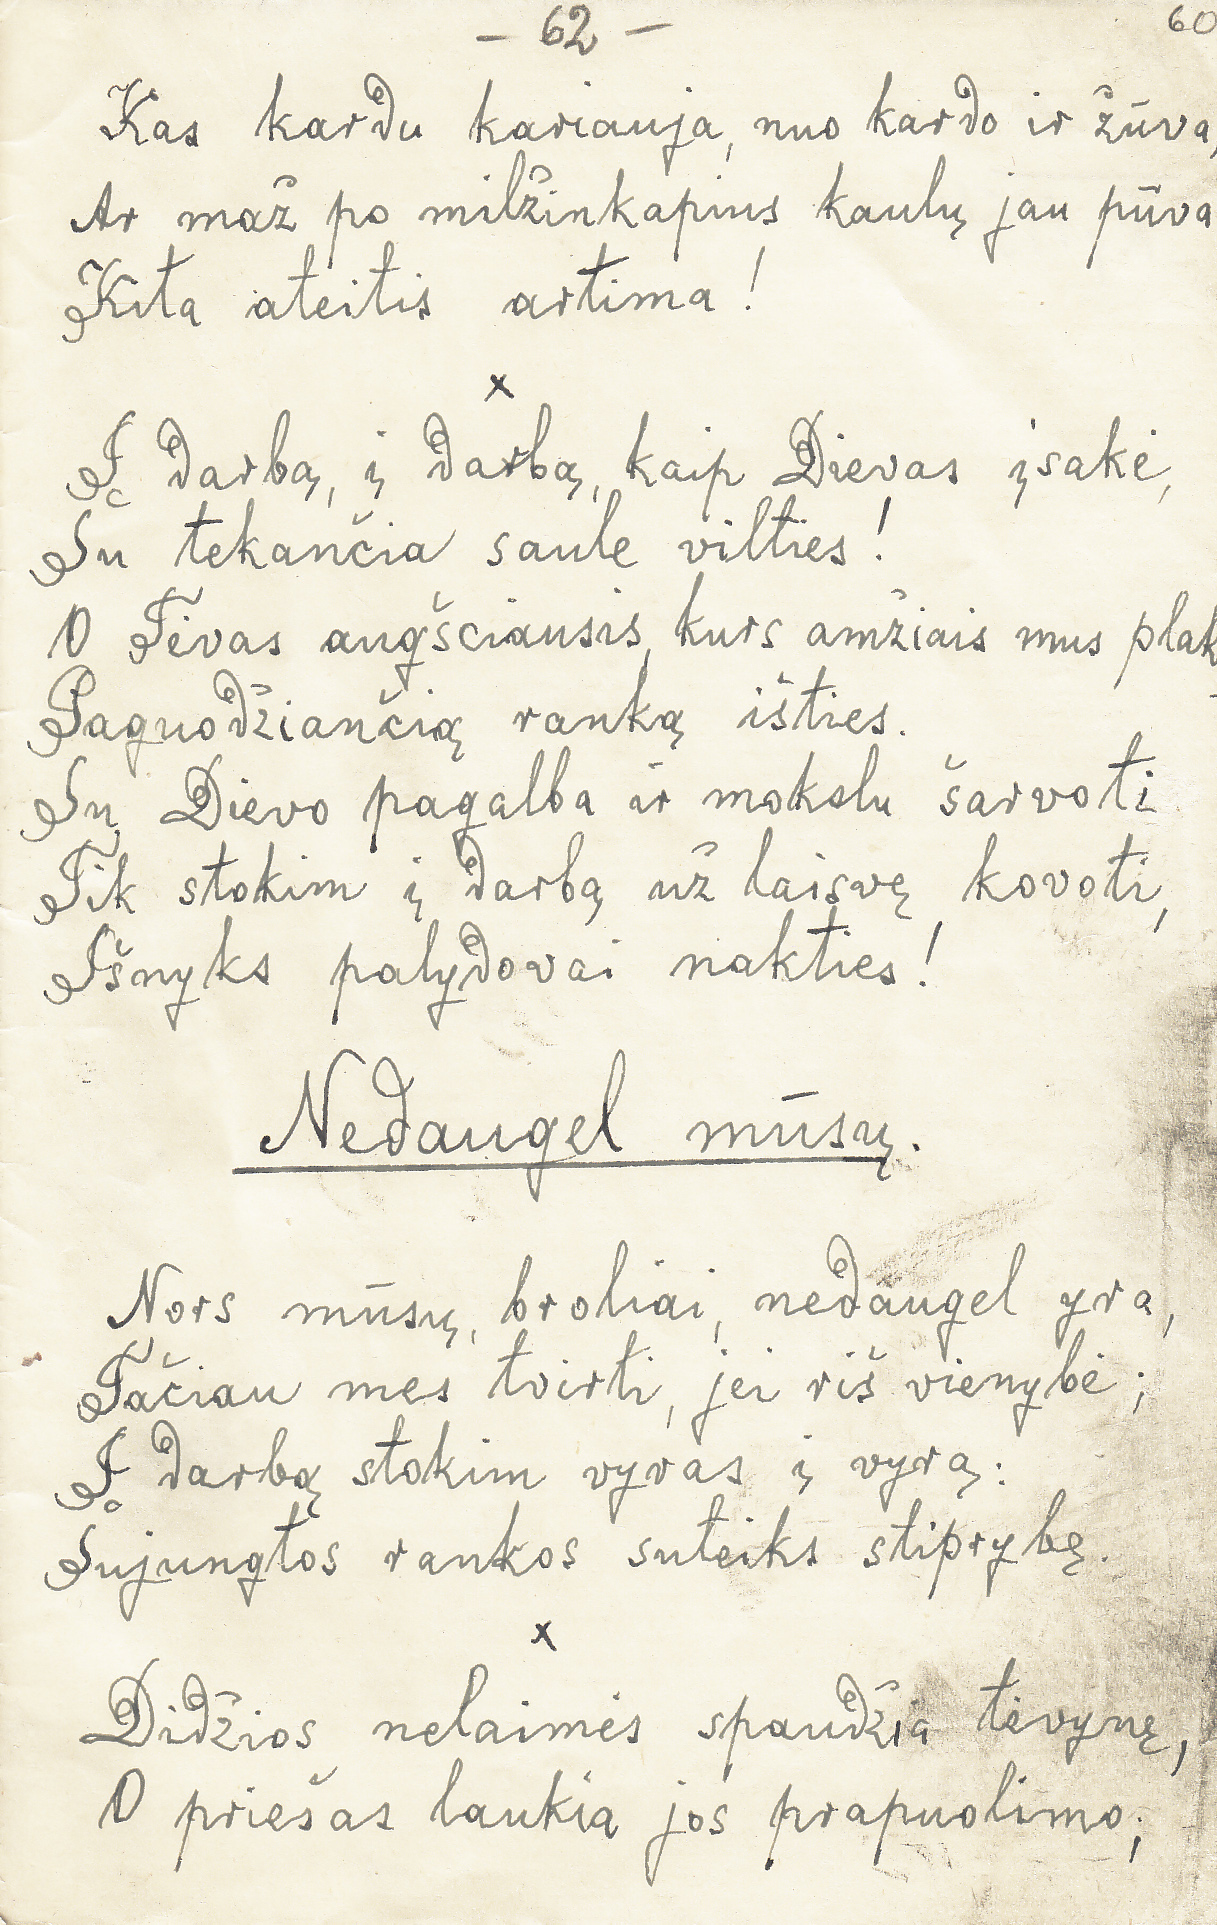 – 62 –
60
Kas kardu kariauja, nuo kardo ir žūva,
Ar maž po milžinkapius kaulų jau pūva
Kita ateitis artima!
x
Į darbą, į darbą, kaip Dievas įsakė,
Su tekančia saule vilties!
O Tėvas augščiausis, kurs amžiais mus plak
Paguodžiančią ranką išties.
Su Dievo pagalba ir mokslu šarvoti
Tik stokim į darbą už laisvę kovoti,
Išnyks palydovai nakties!
Nedaugel mūsų.
Nors mūsų, broliai, nedaugel yra,
Tačiau mes tvirti, jei riš vienybė;
Į darbą stokim vyras į vyrą:
Sujungtos rankos suteiks stiprybę.
x
Didžios nelaimės spaudžia tėvynę,
O priešas laukia jos prapuolimo;